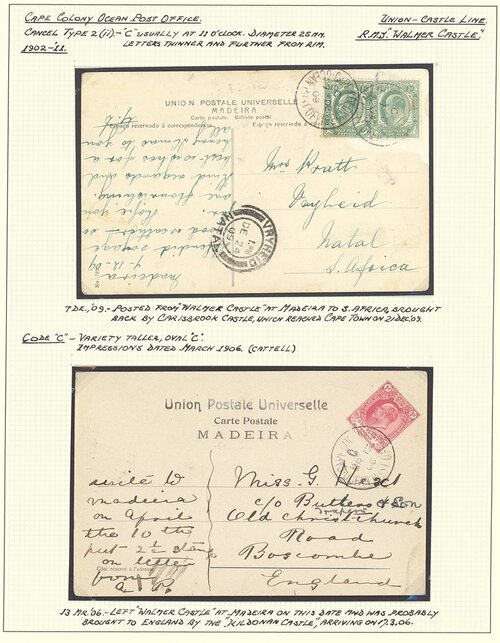 CAPE COLONY OCEAN POST OFFICE.
CANCEL TYPE 2 (ii) - "C" USUALLY AT 11 O'CLOCK. DIAMETER 25MM.
LETTERS THINNER AND FURTHER FROM RIM.
1902-11.
UNION - CASTLE LINE.
R.M.S "WALMER CASTLE"
UNION POSTALE UNIVERSELLE
MADEIRA
Carte postale. Bilhete postal
Espaço reservado á correspondencia
Mrs Pratt
Vryheid
Natal
S. Africa
VRYHEID
DE 24
09
NATAL
Madeira
7-12-09
splendid voyage
good weather - so
far. Hope you
are flourishing.
kind regards and
best wishes for a
7 DE., '09. - POSTED FROM "WALMER CASTLE" AT MADEIRA TO S. AFRICA, BROUGHT
BACK BY CARISBROOK CASTLE, UNION REACHED CAPE TOWN ON 21 DEC '09.
CODE "C" - VARIETY TALLER, OVAL "C".
IMPRESSIONS DATED MARCH 1906. (CATTELL)
Union Postale Universelle
Carte Postale
MADEIRA
write to
madeira
on April
the 10 th
put 2½ stamp
on letter
from
Côté réservé à l'adresse
Miss G.
c/o Butters & Son
Old Christchurch
Road
Boscombe
England
13 MR. '06 - LEFT "WALMER CASTLE" AT MADEIRA ON THIS DATE AND WAS PROBABLY
BROUGHT TO ENGLAND BY THE "KILDONAN CASTLE", ARRIVING ON 17.3.06.